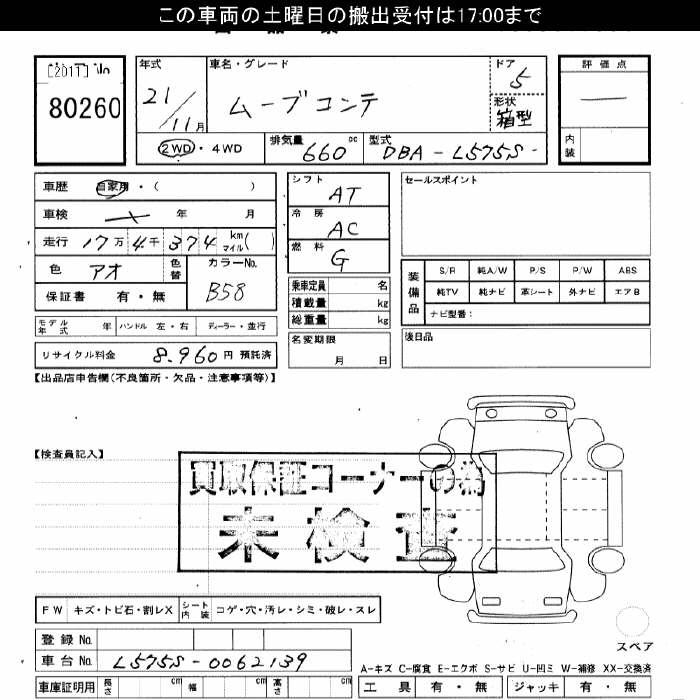 この車両の土曜日の搬出受付は17:00まで
[2017] No
80260
年式
21/11月
車名・グレード
ムーブコンテ
ドア
5
形状
箱型
評価点
—
内装
2WD・4WD
排気量
660 cc
型式
DBA-L575S-
車歴 自家用・( )
車検 年 月
走行 17万 4千 374 km マイル( )
色 アオ 色替
カラーNo.
B58
保証書 有・無
モデル年式 年 ハンドル 左・右 ディーラー・並行
リサイクル料金 8,960 円 預託済
シフト
AT
冷房
AC
燃料
G
乗車定員 名
積載量 kg
総重量 kg
名変期限
月 日
セールスポイント
装備品
S/R 純A/W P/S P/W ABS
純TV 純ナビ 革シート 外ナビ エアB
ナビ型番:
後日品
【出品店申告欄(不良箇所・欠品・注意事項等)】
【検査員記入】
買取保証コーナーの為
未検査
FW キズ・トビ石・割レX シート内装 コゲ・穴・汚レ・シミ・破レ・スレ
スペア
登録No.
車台No. L575S-0062139
車庫証明用 長さ cm 幅 cm 高さ cm
A-キズ C-腐食 E-エクボ S-サビ U-凹ミ W-補修 XX-交換済
工具 有・無 ジャッキ 有・無